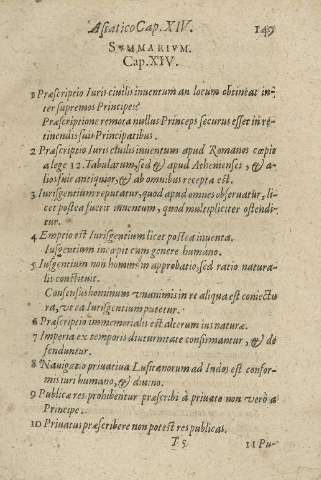 Asiatico Cap. XIV. 149
SVMMARIVM.
Cap. XIV.
1 Præscriptio Iuris ciuilis inuentum an locum obtineat in-
ter supremos Principes?
Præscriptione remota nullus Princeps securus esset in re-
tinendis suis Principatibus.
2 Præscriptio Iuris ciuilis inuentum apud Romanos cœpit
a lege 12. Tabularum, sed & apud Athenienses, & a-
lios fuit antiquior, & ab omnibus recepta est.
3 Iurisgentium reputatur, quod apud omnes obseruatur, li-
cet postea fuerit inuentum, quod multipliciter ostendi-
tur.
4 Emptio est Iurisgentium licet postea inuenta.
Iusgentium incapit cum genere humano.
5 Iusgentium non hominum approbatio, sed ratio natura-
lis constituit.
Consensus hominum vnanimis in re aliqua est coniectu
ra, vt ea Iurisgentium putetur.
6 Præscriptio immemorialis est alterum ius naturæ.
7 Imperia ex temporis diuturnitate confirmantur, & de
fenduntur.
8 Nauigatio priuatiua Lusitanorum ad Indos est confor-
mis iuri humano, & diuino.
9 Publicæ res prohibentur præscribi à priuato non verò a
Principe.
10 Priuatus præscribere non potest res publicas.
T 5 11 Pu-